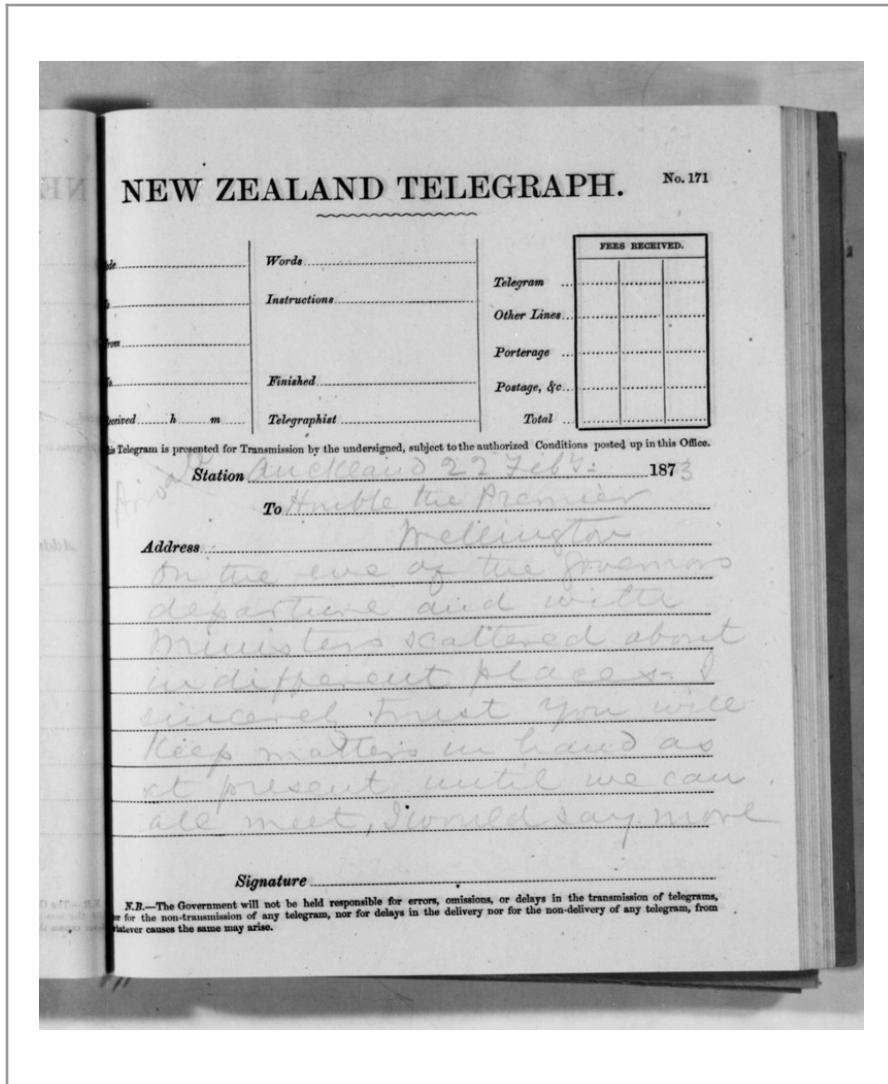 NEW ZEALAND TELEGRAPH.
No. 171
FEES RECEIVED.
Words
Instructions
Finished
Telegraphist
Telegram
Other Lines
Porterage
Postage, &c
Total
h m
Telegram is presented for Transmission by the undersigned, subject to the authorized Conditions posted up in this Office.
Station Auckland 22 Feby. 1873
To Honble the Premier
Address Wellington
On the eve of the Governors
departure and with
Ministers scattered about
in different places I
sincerel trust you will
Keep matters in hand as
at present until we can
all meet, I would say more
Signature
N.B.—The Government will not be held responsible for errors, omissions, or delays in the transmission of telegrams,
for the non-transmission of any telegram, nor for delays in the delivery nor for the non-delivery of any telegram, from
causes the same may arise.